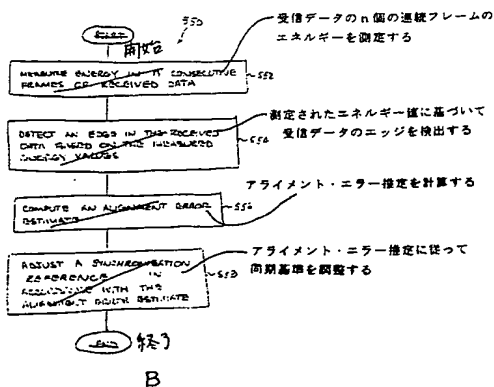 550
START
開始
受信データのn個の連続フレームの
エネルギーを測定する
MEASURE ENERGY IN n CONSECUTIVE
FRAMES OF RECEIVED DATA
552
測定されたエネルギー値に基づいて
受信データのエッジを検出する
DETECT AN EDGE IN THE RECEIVED
DATA BASED ON THE MEASURED
ENERGY VALUES
554
アライメント・エラー推定を計算する
COMPUTE AN ALIGNMENT ERROR
ESTIMATE
556
アライメント・エラー推定に従って
同期基準を調整する
ADJUST A SYNCHRONISATION
REFERENCE IN
ACCORDANCE WITH THE
ALIGNMENT ERROR ESTIMATE
558
END
終了
B